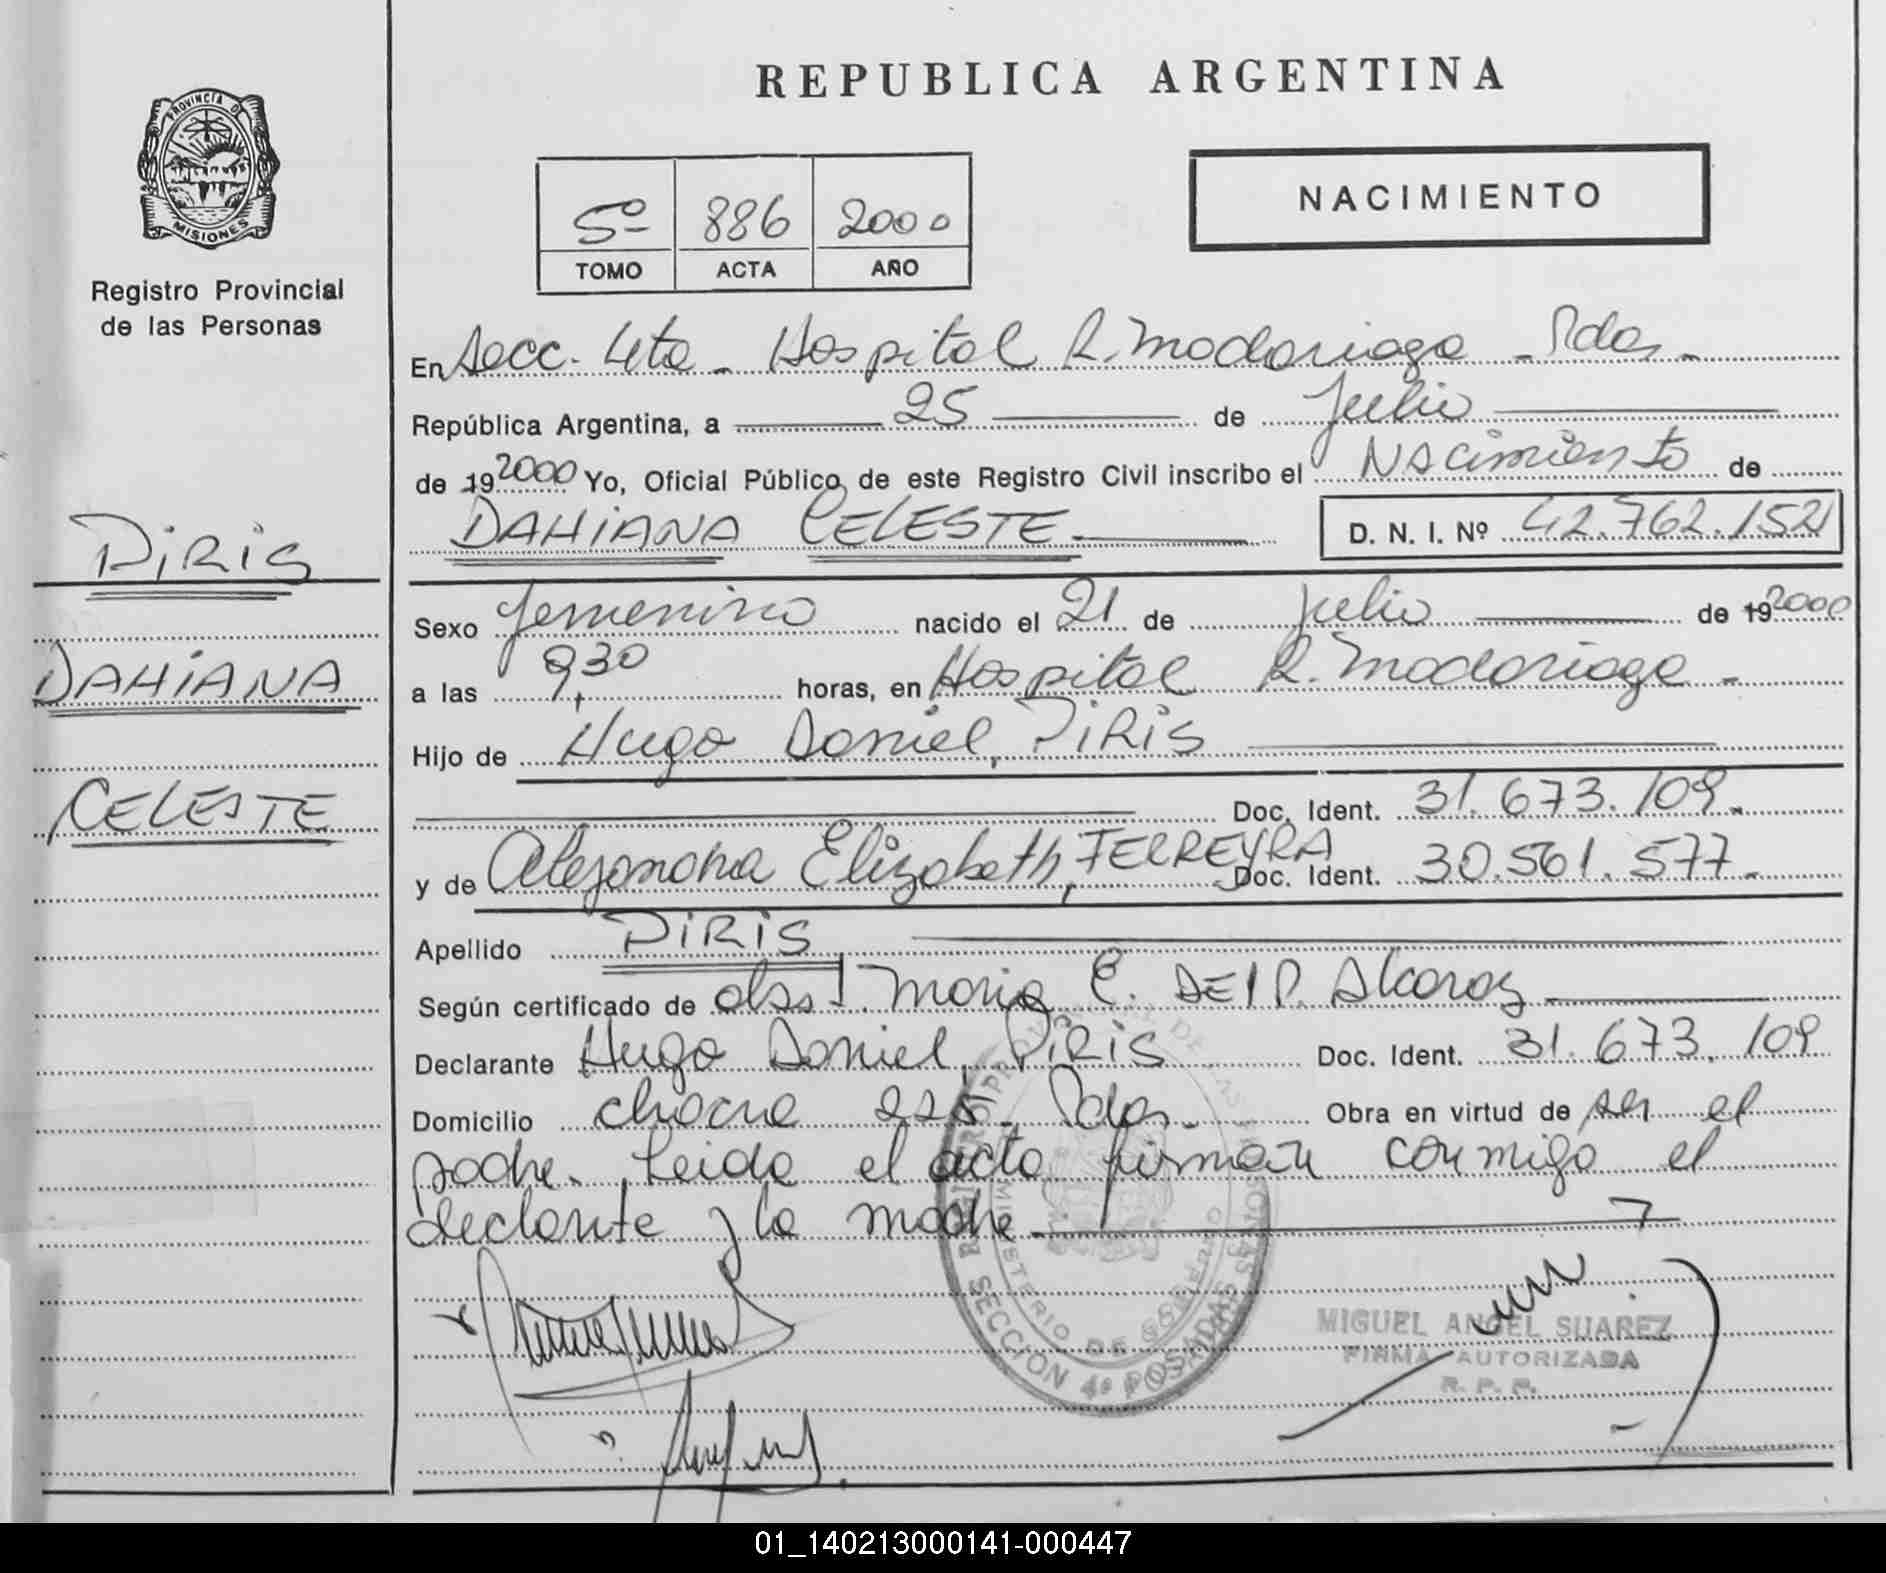 REPUBLICA ARGENTINA
PROVINCIA DE
MISIONES
Registro Provincial
de las Personas
5º 886 2000
TOMO ACTA AÑO
NACIMIENTO
En Secc. 4ta - Hospital R. Madariaga - Pdas -
República Argentina, a 25 de Julio
de 192000 Yo, Oficial Público de este Registro Civil inscribo el Nacimiento de
DAHIANA CELESTE D. N. I. Nº 42.762.152
PIRIS
DAHIANA
CELESTE
Sexo femenino nacido el 21 de Julio de 192000
a las 9,30 horas, en Hospital R. Madariaga -
Hijo de Hugo Daniel, PIRIS
Doc. Ident. 31.673.109.
y de Alejandra Elizabeth, FERREYRA Doc. Ident. 30.561.577.
Apellido PIRIS
Según certificado de obst. Maria E. DEL P. Alcaraz
Declarante Hugo Daniel, PIRIS Doc. Ident. 31.673.109
Domicilio chacra Pdas. Obra en virtud de ser el
padre. Leida el acta firman conmigo el
declarante y la madre
REGISTRO PROVINCIAL DE LAS PERSONAS
MINISTERIO DE GOBIERNO
SECCION 4º POSADAS
MIGUEL ANGEL SUAREZ
FIRMA AUTORIZADA
R. P. P.
01_140213000141-000447